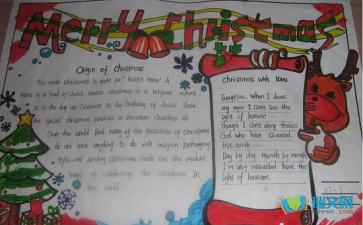 Merry Christmas
Origin of Christmas
The name Christmas is short for "Christ's Mass". A
Mass is a kind of Church service Christmas is a religious
It is the day we celebrate as the birthday of Jesus. There
are special Christmas services in Christian churches all
Over the world. But many of the festivities of Christmas
do not have anything to do with religion. Exchanging
gifts and sending Christmas cards are the modern
ways of celebrating the Christmas in
the world.
Christmas with love
Everytime When I does
my eyes I can see the
light of heaven
Though I can't deny that's
God who have Created
this earth
Day by day month by month
I'm very interested bout the
light of heaven